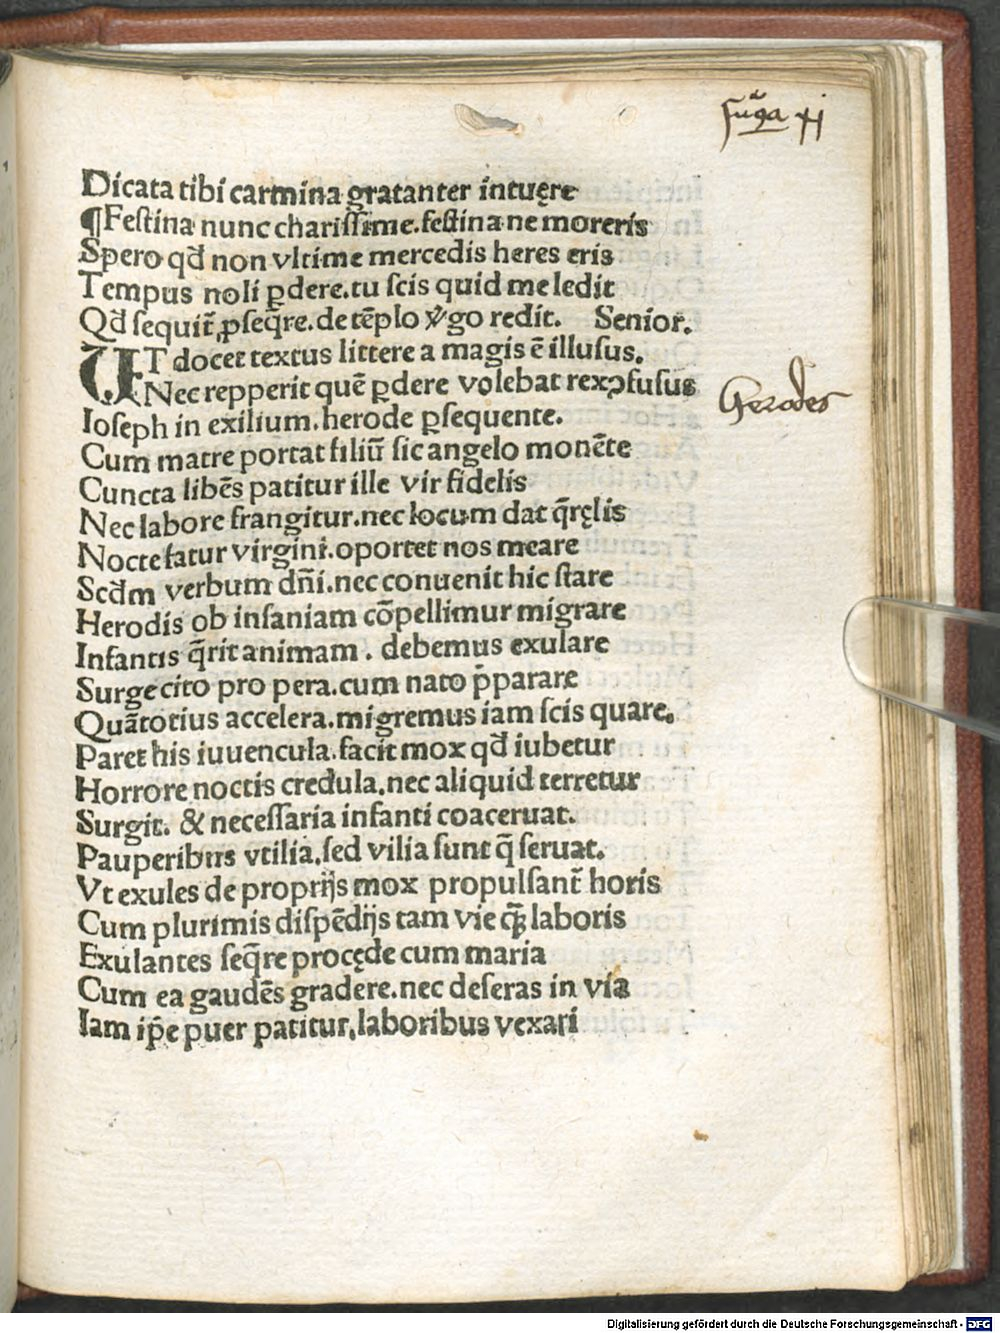 Dicata tibi carmina gratanter intuęre
¶Festina nunc charissime.festina ne moreris
Spero qd̄ non vltime mercedis heres eris
Tempus noli ꝑdere.tu scis quid me ledit
Qd̄ sequit᷑ ꝓseq̄re.de tēplo v̓go redit. Senior.
UT docet textus littere a magis ē illusus.
Nec repperit quē ꝑdere volebat rex ꝯfusus
Ioseph in exilium.herode ꝑsequente.
Cum matre portat filiū sic angelo monēte
Cuncta libēs patitur ille vir fidelis
Nec labore frangitur.nec locum dat q̄ręlis
Nocte fatur virgini.oportet nos meare
Scd̄m verbum dn̄i.nec conuenit hic stare
Herodis ob insaniam cōpellimur migrare
Infantis q̄rit animam. debemus exulare
Surge cito pro pera.cum nato p̄parare
Quātotius accelera.migremus iam scis quare.
Paret his iuuencula.facit mox qd̄ iubetur
Horrore noctis credula.nec aliquid terretur
Surgit. & necessaria infanti coaceruat.
Pauperibus vtilia.sed vilia sunt q̄ seruat.
Vt exules de proprijs mox propulsant᷑ horis
Cum plurimis dispēdijs tam vie qꝫ̄ laboris
Exulantes seq̄re procęde cum maria
Cum ea gaudēs gradere.nec deseras in via
Iam ip̄e puer patitur,laboribus vexari
Gerodes
Digitalisierung gefördert durch die Deutsche Forschungsgemeinschaft - DFG